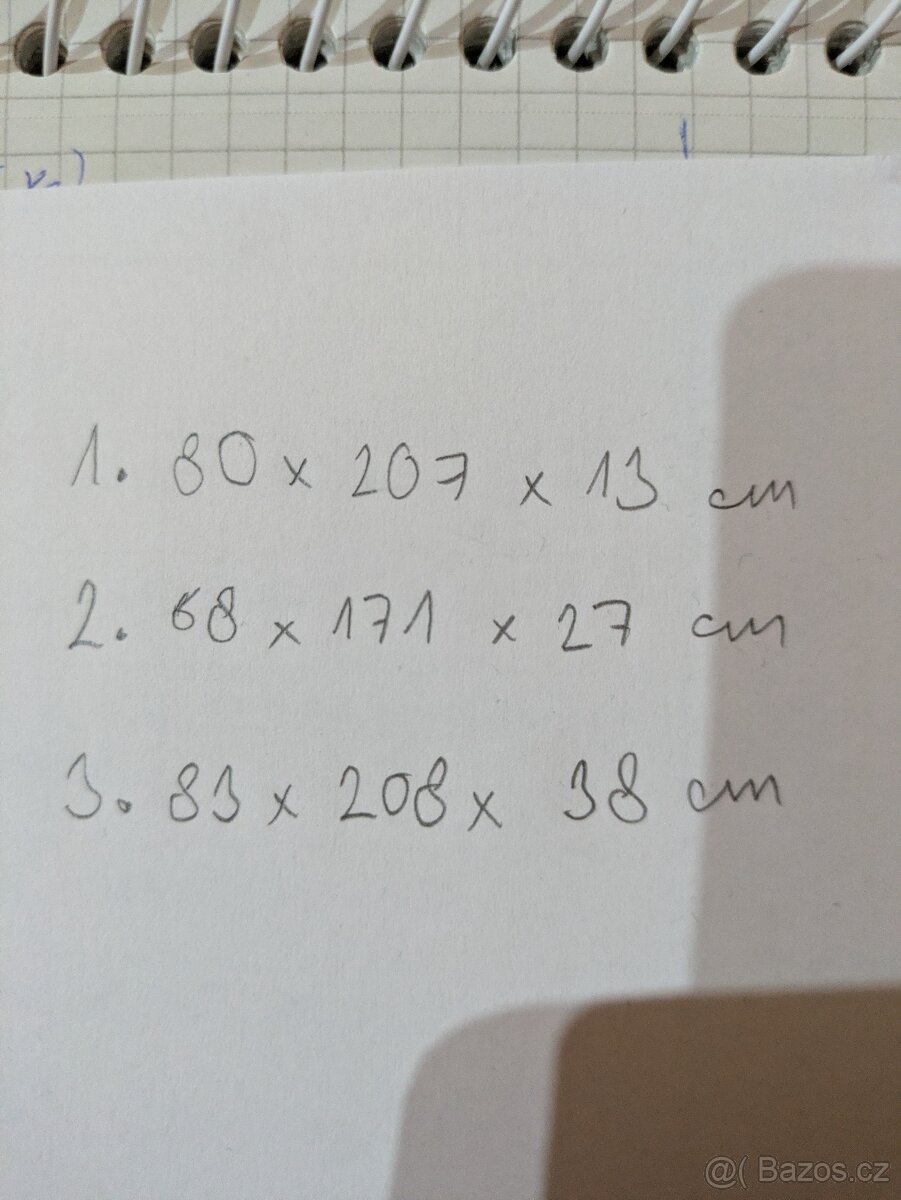 1. 80 x 207 x 13 cm
2. 68 x 171 x 27 cm
3. 83 x 208 x 38 cm
@( Bazos.cz